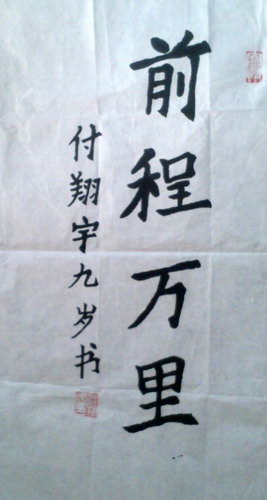 前程万里
付翔宇九岁书